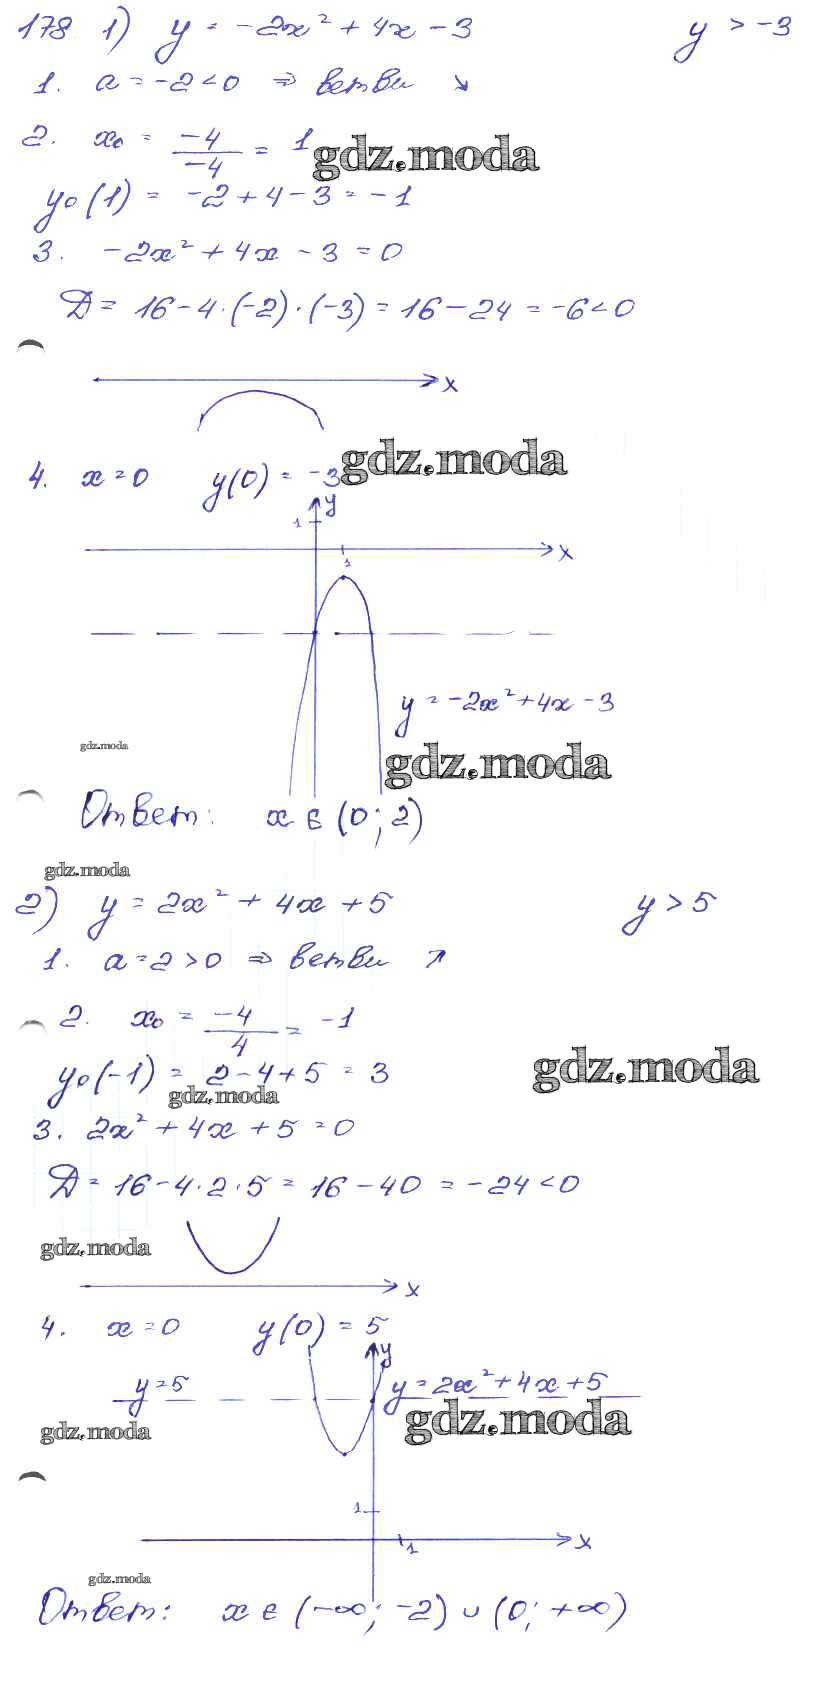 178 1) y = -2x² + 4x - 3 y > -3
1. a = -2 < 0 ⇒ ветви ↘
2. x₀ = -4/-4 = 1
gdz.moda
y₀(1) = -2 + 4 - 3 = -1
3. -2x² + 4x - 3 = 0
Д = 16 - 4·(-2)·(-3) = 16 - 24 = -6 < 0
x
4. x = 0 y(0) = -3
gdz.moda
y
1
x
1
y = -2x² + 4x - 3
gdz.moda
gdz.moda
Ответ: x ∈ (0; 2)
gdz.moda
2) y = 2x² + 4x + 5 y > 5
1. a = 2 > 0 ⇒ ветви ↗
2. x₀ = -4/4 = -1
gdz.moda
y₀(-1) = 2 - 4 + 5 = 3
gdz.moda
3. 2x² + 4x + 5 = 0
Д = 16 - 4·2·5 = 16 - 40 = -24 < 0
gdz.moda
x
4. x = 0 y(0) = 5
y
y = 5 y = 2x² + 4x + 5
gdz.moda gdz.moda
1
x
1
gdz.moda
Ответ: x ∈ (-∞; -2) ∪ (0; +∞)